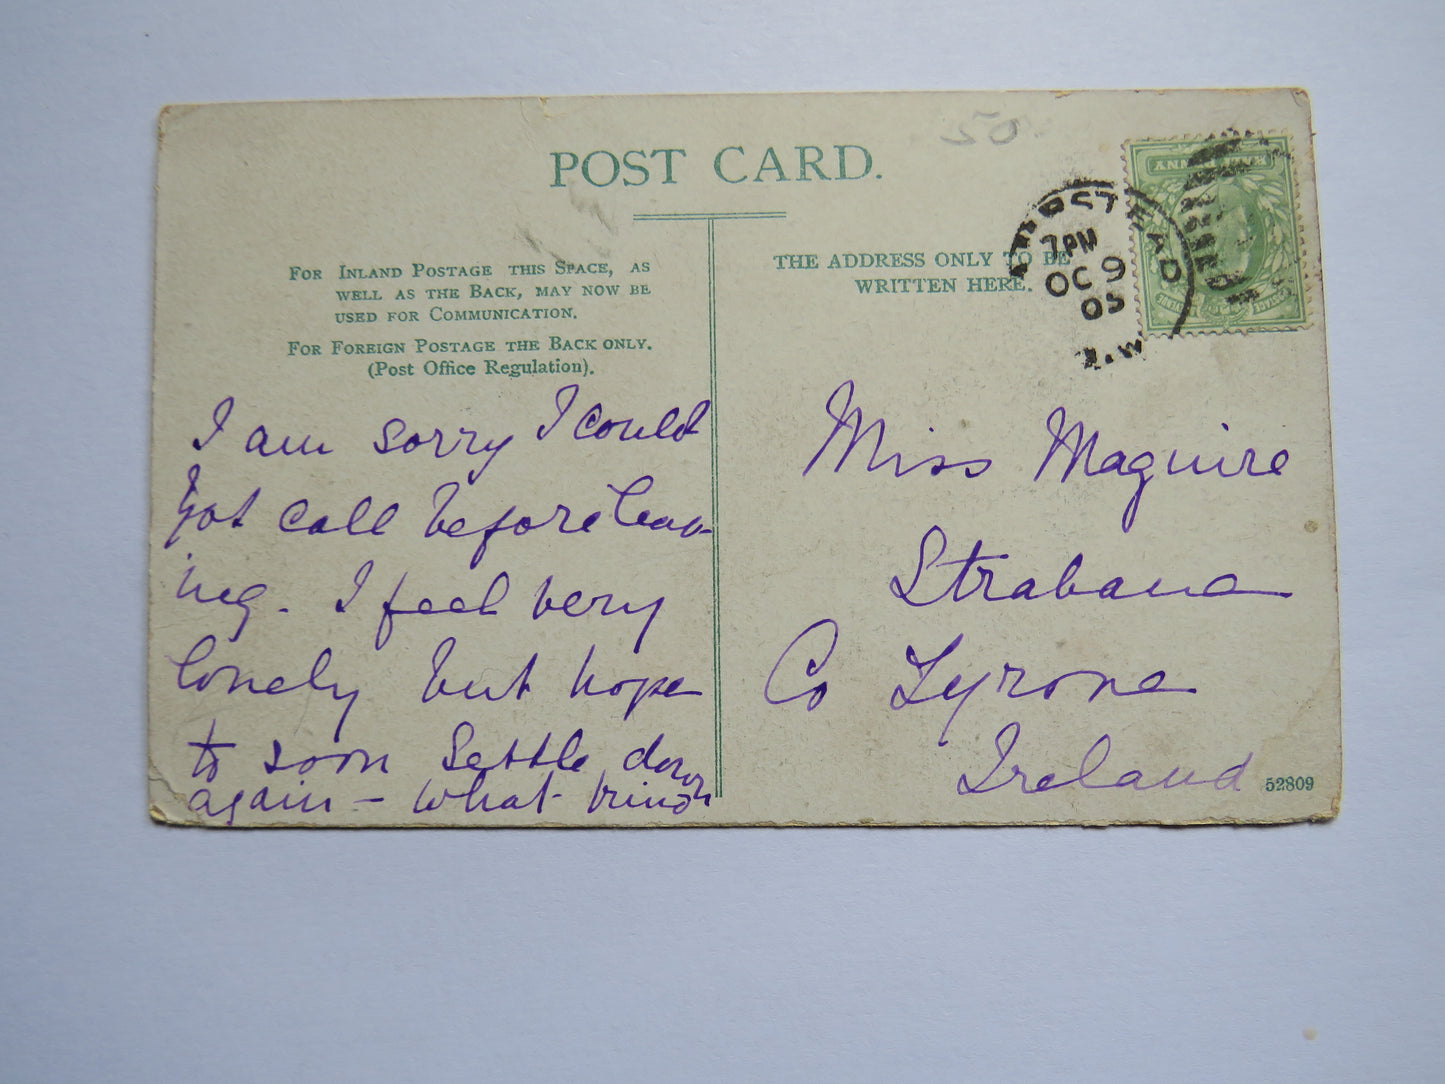 50
POST CARD.
FOR INLAND POSTAGE THIS SPACE, AS
WELL AS THE BACK, MAY NOW BE
USED FOR COMMUNICATION.
FOR FOREIGN POSTAGE THE BACK ONLY.
(Post Office Regulation).
I am sorry I could
not call before leav-
ing. I feel very
lonely but hope
to soon settle down
again - What
THE ADDRESS ONLY TO BE
WRITTEN HERE.
7 PM
OC 9
05
N.W
HALF PENNY
Miss Maguire
Strabane
Co Tyrone
Ireland
52809